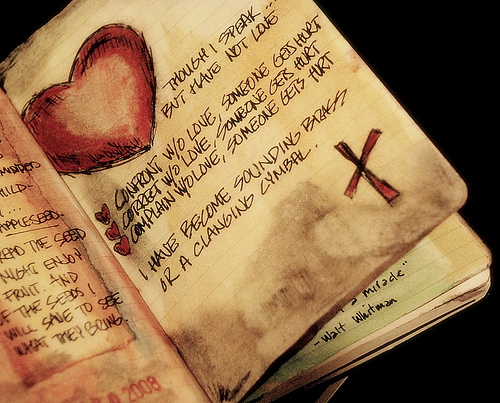 MINDED
WILD-
APPLESEED.
READ THE SEED
NIGHT ENJOY
FRUIT. AND
OF THE SEEDS I
WILL SAVE TO SEE
WHAT THEY BRING.
2008
THOUGH I SPEAK...
BUT HAVE NOT LOVE
CONFRONT W/O LOVE, SOMEONE GETS HURT
CORRECT W/O LOVE, SOMEONE GETS HURT
COMPLAIN W/O LOVE, SOMEONE GETS HURT
I HAVE BECOME SOUNDING BRASS
OR A CLANGING CYMBAL.
X
a miracle"
- Walt Whitman